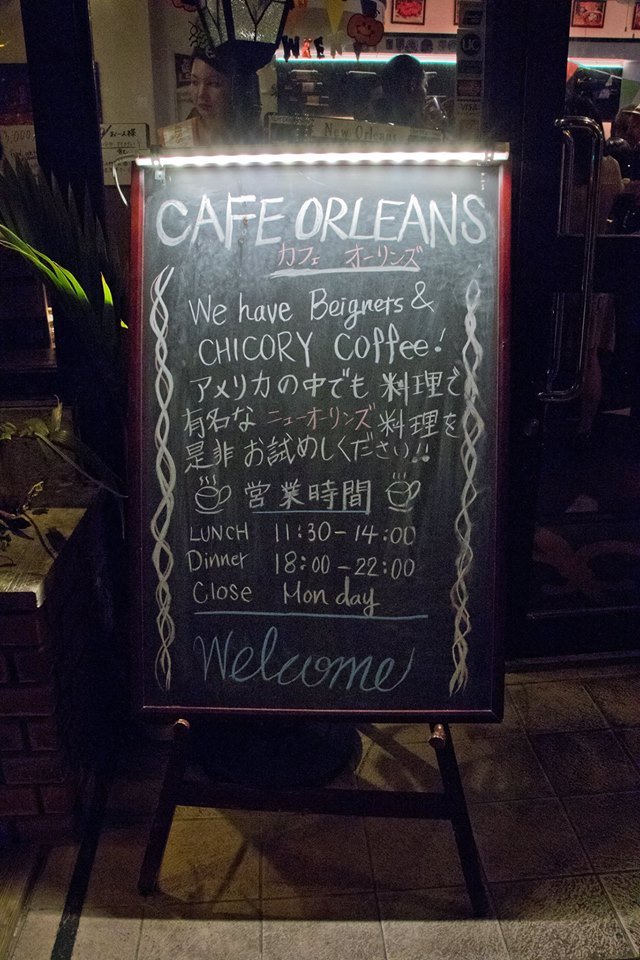 New Orleans
VISA
CAFE ORLEANS
カフェ オーリンズ
We have Beignets &
CHICORY Coffee!
アメリカの中でも 料理で
有名な ニューオーリンズ 料理を
是非 お試めしください!!
営業時間
LUNCH 11:30-14:00
Dinner 18:00-22:00
Close Monday
Welcome